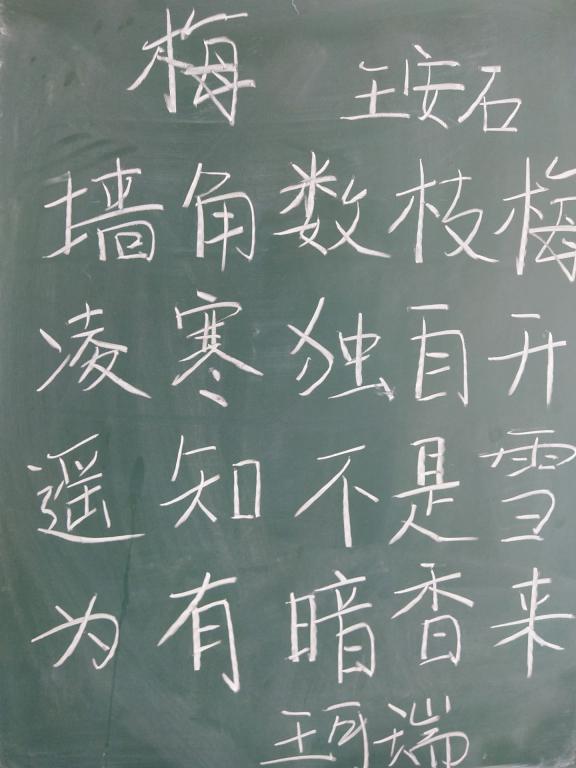 梅
王安石
墙角数枝梅
凌寒独自开
遥知不是雪
为有暗香来
王珂瑞